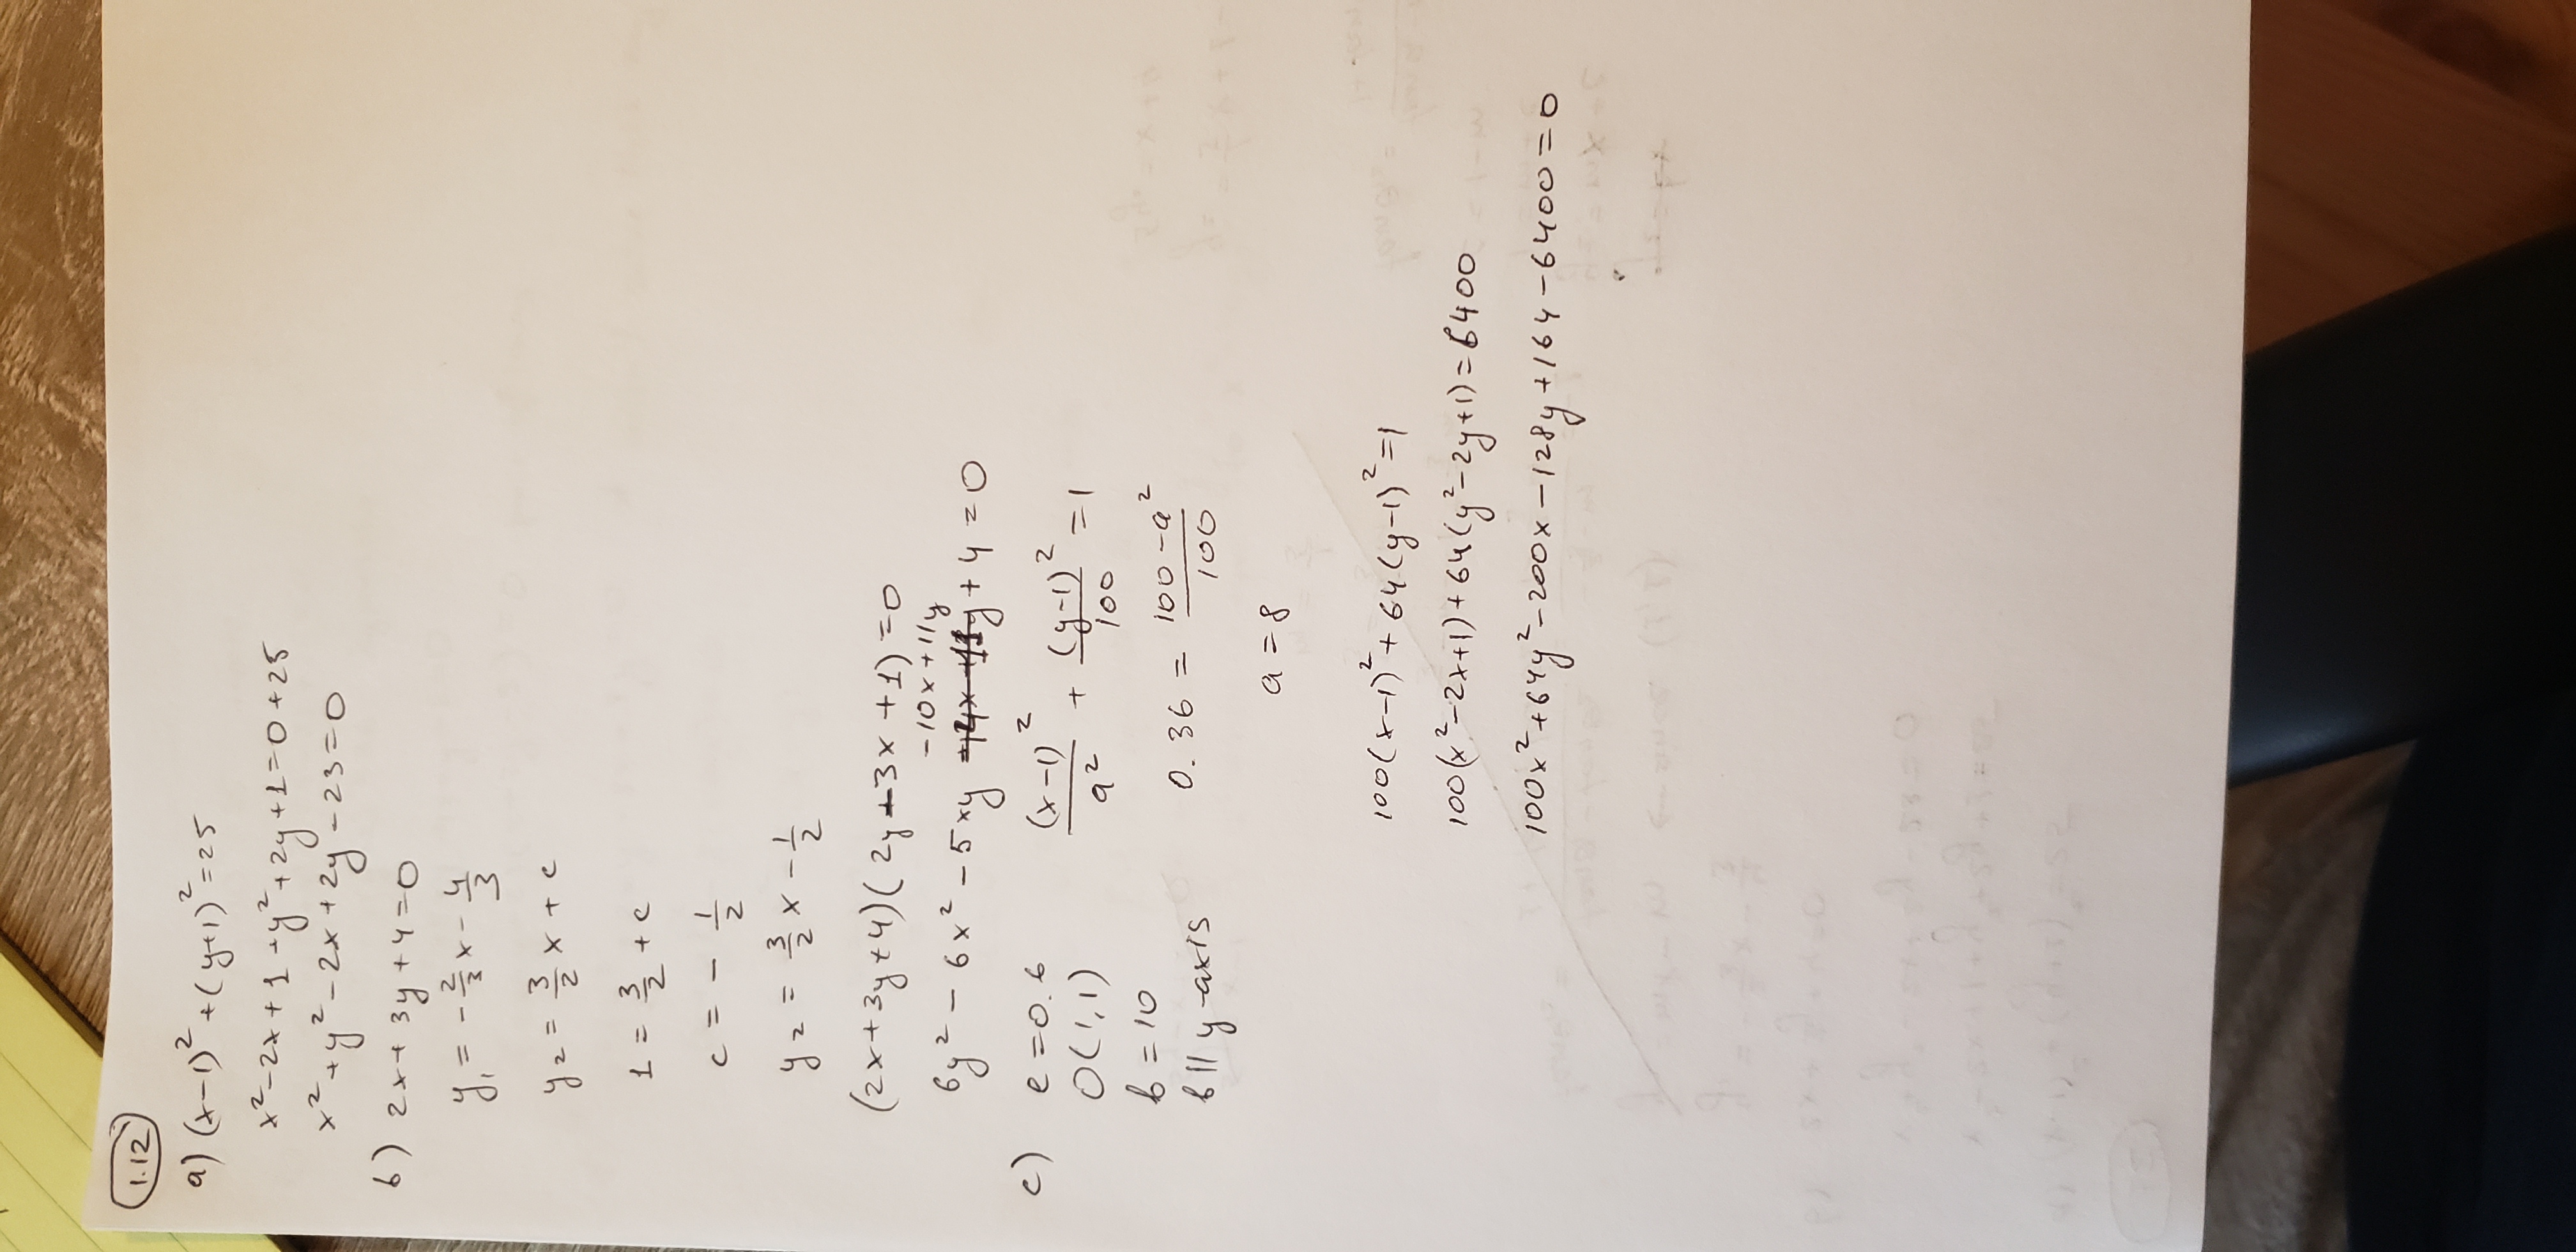 1.12
a) (x-1)² + (y+1)² = 25
x² - 2x + 1 + y² + 2y + 1 = 0 + 25
x² + y² - 2x + 2y - 23 = 0
b) 2x + 3y + 4 = 0
y₁ = -2/3 x - 4/3
y₂ = 3/2 x + c
1 = 3/2 + c
c = - 1/2
y₂ = 3/2 x - 1/2
(2x + 3y + 4)(2y - 3x + 1) = 0
-10x + 11y
6y² - 6x² - 5xy + 4 = 0
c) e = 0.6
O(1,1)
b = 10
b || y-axis
(x-1)²/a² + (y-1)²/100 = 1
0.36 = (100 - a²)/100
a = 8
100(x-1)² + 64(y-1)² = 1
100(x² - 2x + 1) + 64(y² - 2y + 1) = 6400
100x² + 64y² - 200x - 128y + 164 - 6400 = 0